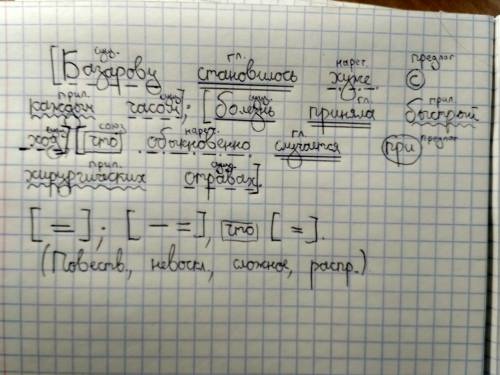 сущ. гл. нареч. предлог
[Базарову становилось хуже с
прил. сущ. сущ. гл. прил.
каждым часом]; [болезнь приняла быстрый
сущ. союз нареч. гл. предлог
ход], [что обыкновенно случается при
прил. сущ.
хирургических отравах].
[=]; [– =], что [=].
(Повеств., невоскл., сложное, распр.)